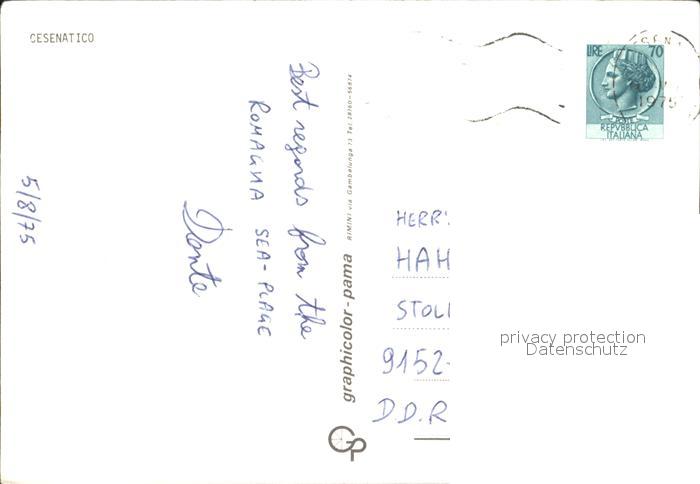 CESENATICO
LIRE 70
REPVBBLICA
ITALIANA
1975
Best regards from the
ROMAGNA SEA-PLAGE
Dante
5/8/75
RIMINI via Gambalunga
graphicolor - pama
HERR
HAH
STOLL
9152-
D.D.R
privacy protection
Datenschutz